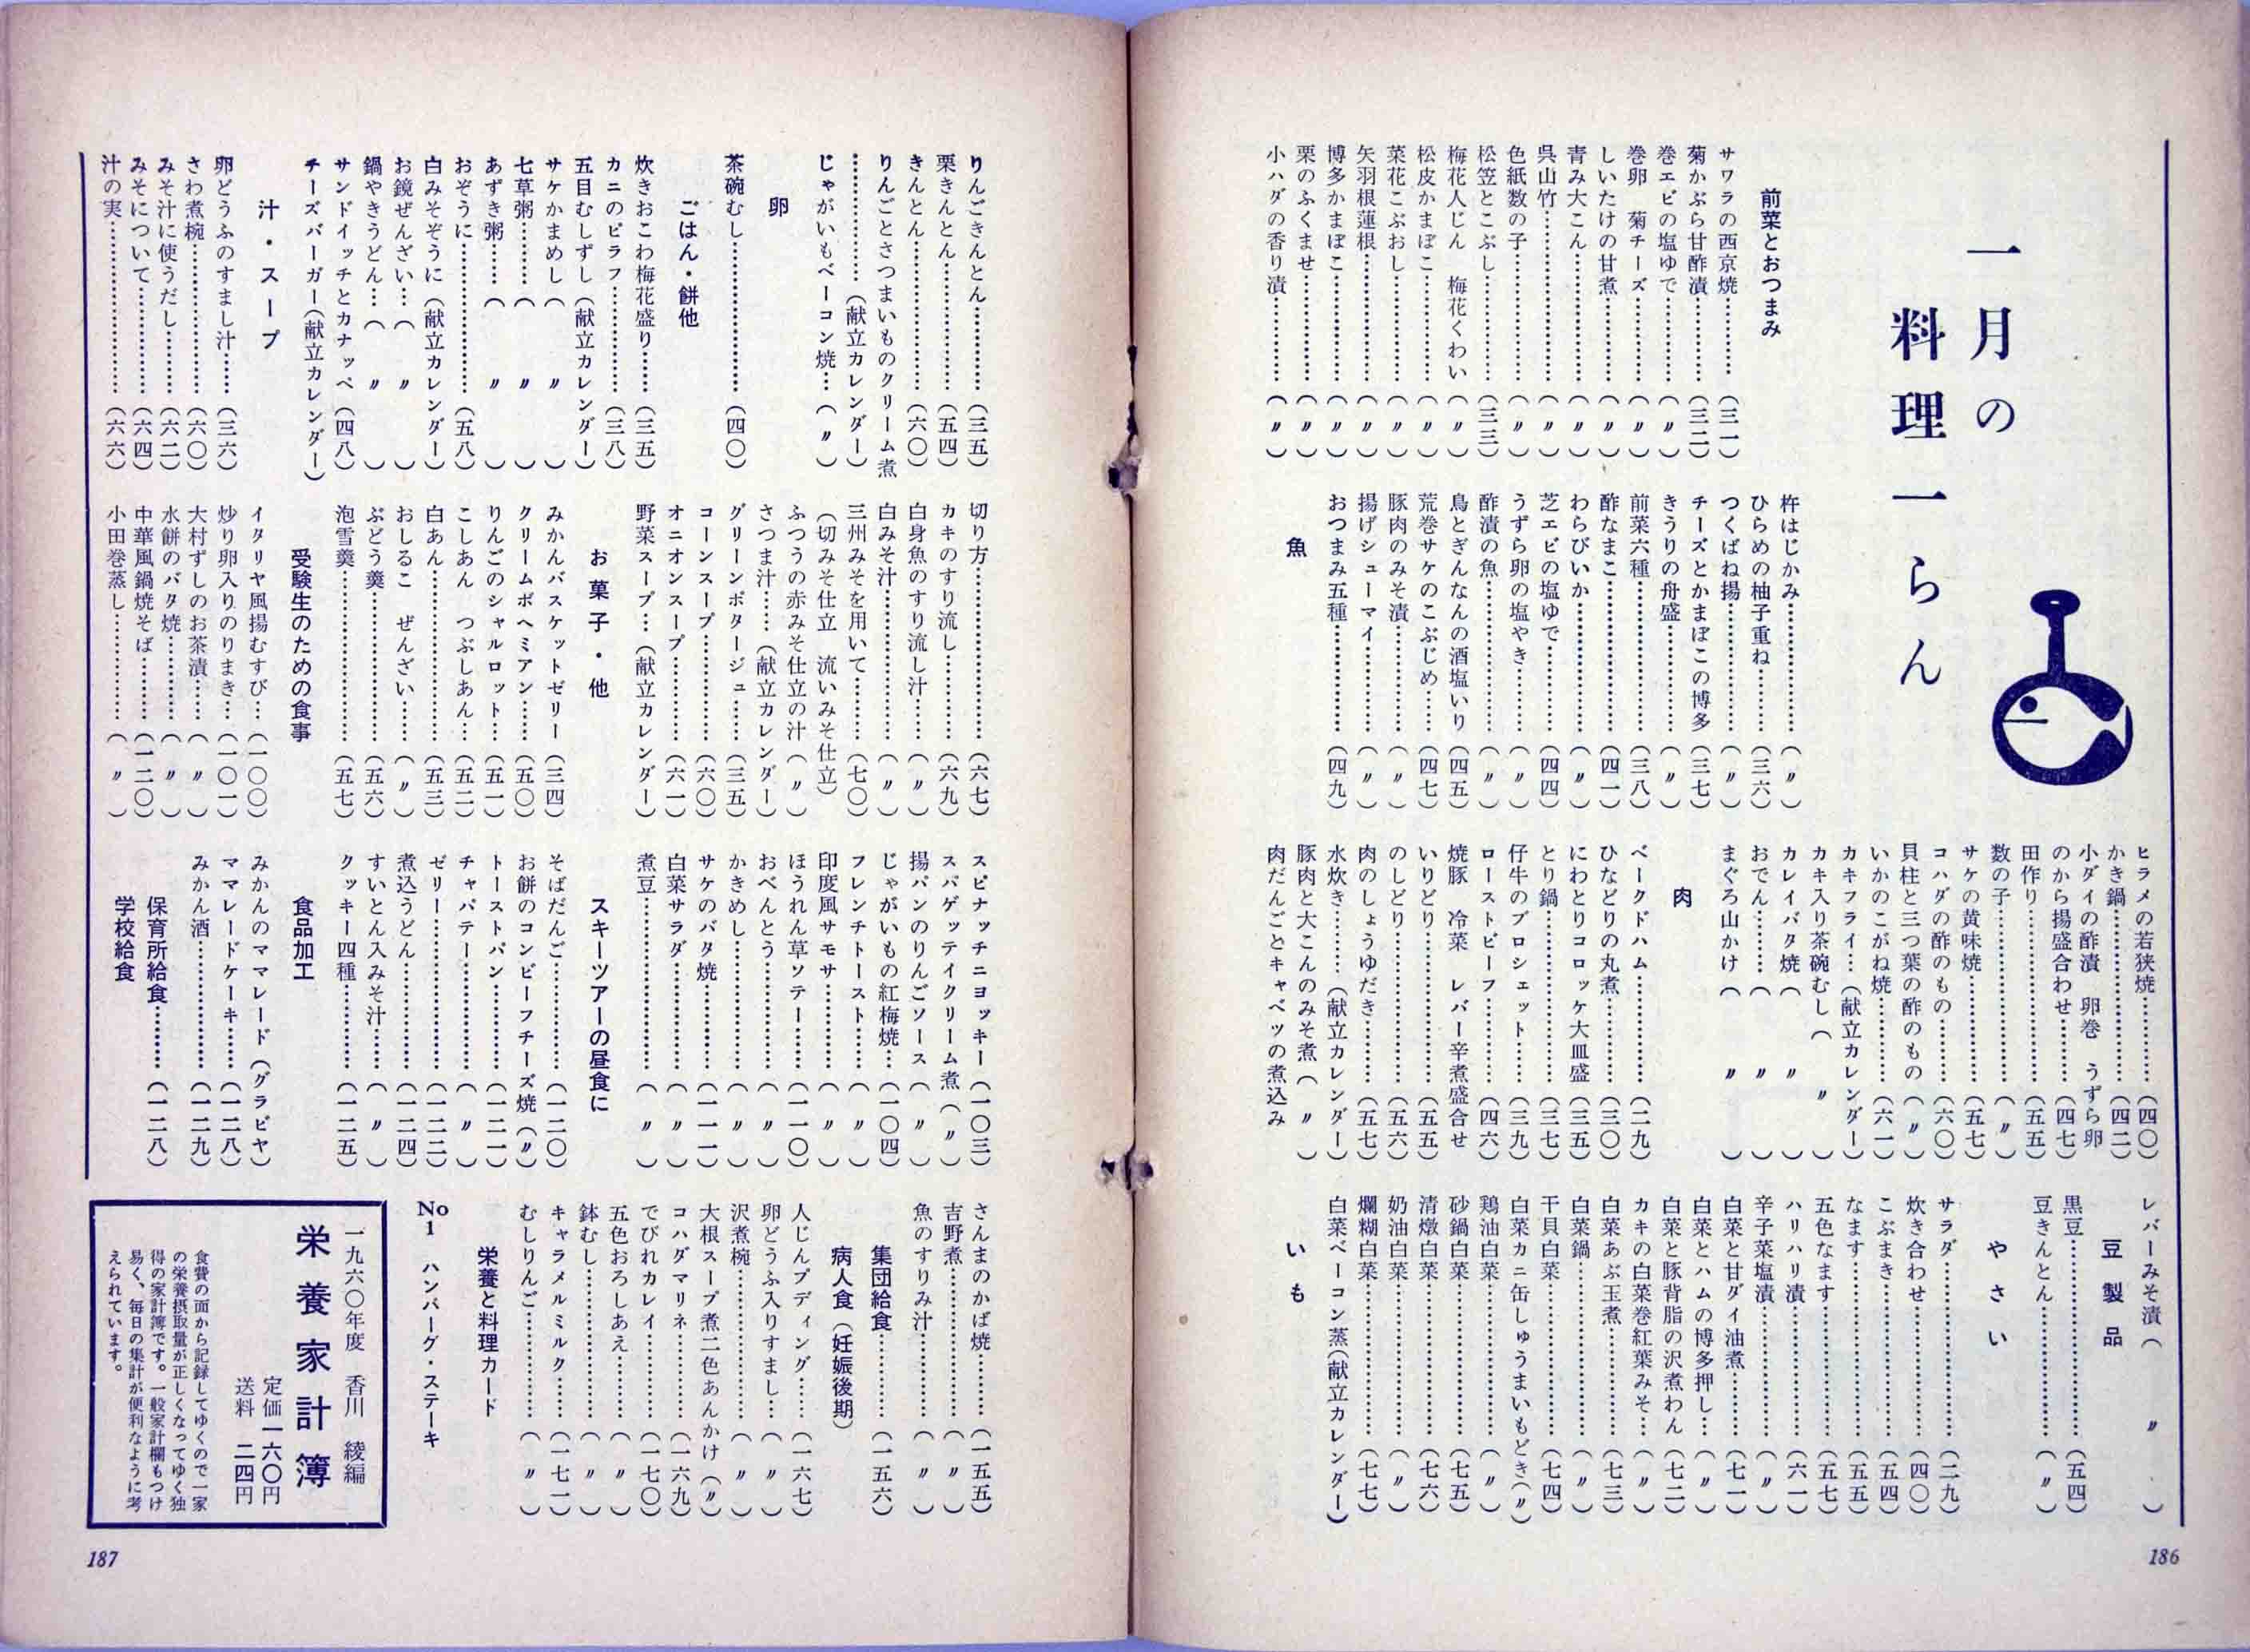 一月の
料理一らん
前菜とおつまみ
サワラの西京焼…………(三一)
菊かぶら甘酢漬…………(三二)
巻エビの塩ゆで…………(〃)
巻卵 菊チーズ…………(〃)
しいたけの甘煮…………(〃)
青み大こん…………(〃)
呉山竹…………(〃)
色紙数の子…………(〃)
松笠とこぶし…………(三三)
梅花人じん 梅花くわい(〃)
松皮かまぼこ…………(〃)
菜花こぶおし…………(〃)
矢羽根蓮根…………(〃)
博多かまぼこ…………(〃)
栗のふくませ…………(〃)
小ハダの香り漬…………(〃)
杵はじかみ…………(〃)
ひらめの柚子重ね……(三六)
つくばね揚…………(〃)
チーズとかまぼこの博多(三七)
きうりの舟盛…………(〃)
前菜六種…………(三八)
酢なまこ…………(四一)
わらびいか…………(〃)
芝エビの塩ゆで…………(四四)
うずら卵の塩やき……(〃)
酢漬の魚…………(〃)
鳥とぎんなんの酒塩いり(四五)
荒巻サケのこぶじめ……(四七)
豚肉のみそ漬…………(〃)
揚げシューマイ…………(〃)
おつまみ五種…………(四九)
魚
ヒラメの若狭焼…………(四〇)
かき鍋…………(四二)
小ダイの酢漬 卵巻 うずら卵
のから揚盛合わせ……(四七)
田作り…………(五五)
数の子…………(〃)
サケの黄味焼…………(五七)
コハダの酢のもの……(六〇)
貝柱と三つ葉の酢のもの(〃)
いかのこがね焼…………(六一)
カキフライ…(献立カレンダー)
カキ入り茶碗むし( 〃 )
カレイバタ焼( 〃 )
おでん……( 〃 )
まぐろ山かけ( 〃 )
肉
ベークドハム…………(二九)
ひなどりの丸煮…………(三〇)
にわとりコロッケ大皿盛(三五)
とり鍋…………(三七)
仔牛のブロシェット……(三九)
ローストビーフ…………(四六)
焼豚 冷菜 レバー辛煮盛合せ
いりどり…………(五五)
のしどり…………(五六)
肉のしょうゆだき………(五七)
水炊き………(献立カレンダー)
豚肉と大こんのみそ煮(〃)
肉だんごとキャベツの煮込み
レバーみそ漬( 〃 )
豆製品
黒豆…………(五四)
豆きんとん…………(〃)
やさい
サラダ…………(二九)
炊き合わせ…………(四〇)
こぶまき…………(五四)
なます…………(五五)
五色なます…………(五七)
ハリハリ漬…………(六一)
辛子菜塩漬…………(〃)
白菜と甘ダイ油煮………(七一)
白菜とハムの博多押し…(〃)
白菜と豚背脂の沢煮わん(七二)
カキの白菜巻紅葉みそ…(〃)
白菜あぶ玉煮…………(七三)
白菜鍋…………(〃)
干貝白菜…………(七四)
白菜カニ缶しゅうまいもどき(〃)
鶏油白菜…………(〃)
砂鍋白菜…………(七五)
清燉白菜…………(七六)
奶油白菜…………(〃)
爛糊白菜…………(七七)
白菜ベーコン蒸(献立カレンダー)
いも
186
りんごきんとん…………(三五)
栗きんとん…………(五四)
きんとん…………(六〇)
りんごとさつまいものクリーム煮
…………(献立カレンダー)
じゃがいもベーコン焼…(〃)
卵
茶碗むし…………(四〇)
ごはん・餅他
炊きおこわ梅花盛り……(三五)
カニのピラフ…………(三八)
五目むしずし(献立カレンダー)
サケかまめし( 〃 )
七草粥………( 〃 )
あずき粥……( 〃 )
おぞうに…………(五八)
白みそぞうに(献立カレンダー)
お鏡ぜんざい…( 〃 )
鍋やきうどん…( 〃 )
サンドイッチとカナッペ(四八)
チーズバーガー(献立カレンダー)
汁・スープ
卵どうふのすまし汁……(三六)
さわ煮椀…………(六〇)
みそ汁に使うだし………(六二)
みそについて…………(六四)
汁の実…………(六六)
切り方…………(六七)
カキのすり流し…………(六九)
白身魚のすり流し汁……(〃)
白みそ汁…………(〃)
三州みそを用いて………(七〇)
(切みそ仕立 流いみそ仕立)
ふつうの赤みそ仕立の汁(〃)
さつま汁……(献立カレンダー)
グリーンポタージュ……(三五)
コーンスープ…………(六〇)
オニオンスープ…………(六一)
野菜スープ…(献立カレンダー)
お菓子・他
みかんバスケットゼリー(三四)
クリームボヘミアン……(五〇)
りんごのシャルロット…(五一)
こしあん つぶしあん…(五二)
白あん…………(五三)
おしるこ ぜんざい……(〃)
ぶどう羹…………(五六)
泡雪羹…………(五七)
受験生のための食事
イタリヤ風揚むすび…(一〇〇)
炒り卵入りのりまき…(一〇一)
大村ずしのお茶漬……(〃)
水餅のバタ焼…………(〃)
中華風鍋焼そば………(一二〇)
小田巻蒸し…………(〃)
スピナッチニヨッキー(一〇三)
スパゲッテイクリーム煮(〃)
揚パンのりんごソース(〃)
じゃがいもの紅梅焼…(一〇四)
フレンチトースト……(〃)
印度風サモサ…………(〃)
ほうれん草ソテー……(一一〇)
おべんとう…………(〃)
かきめし…………(〃)
サケのバタ焼…………(一一一)
白菜サラダ…………(〃)
煮豆…………(〃)
スキーツアーの昼食に
そばだんご…………(一二〇)
お餅のコンビーフチーズ焼(〃)
トーストパン…………(一二一)
チャパテー…………(〃)
ゼリー…………(一二二)
煮込うどん…………(一二四)
すいとん入みそ汁……(〃)
クッキー四種…………(一二五)
食品加工
みかんのママレード(グラビヤ)
ママレードケーキ……(一二八)
みかん酒…………(一二九)
保育所給食…………(一二八)
学校給食
さんまのかば焼………(一五五)
吉野煮…………(〃)
魚のすりみ汁…………(〃)
集団給食…………(一五六)
病人食(妊娠後期)
人じんプディング……(一六七)
卵どうふ入りすまし…(〃)
沢煮椀…………(〃)
大根スープ煮二色あんかけ(〃)
コハダマリネ…………(一六九)
でびれカレイ…………(一七〇)
五色おろしあえ………(〃)
鉢むし…………(〃)
キャラメルミルク……(一七一)
むしりんご…………(〃)
栄養と料理カード
No1 ハンバーグ・ステーキ
一九六〇年度 香川 綾編
栄養家計簿
定価一六〇円
送料 二四円
食費の面から記録してゆくので一家
の栄養摂取量が正しくなってゆく独
得の家計簿です。一般家計欄もつけ
易く、毎日の集計が便利なように考
えられています。
187